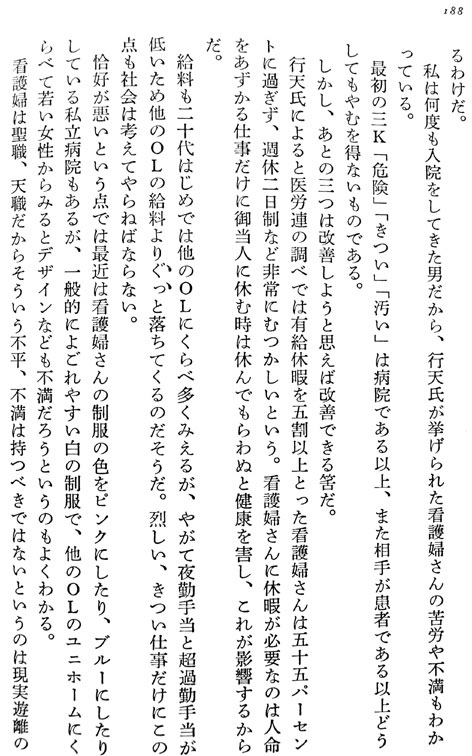 188
るわけだ。
私は何度も入院をしてきた男だから、行天氏が挙げられた看護婦さんの苦労や不満もわか
っている。
最初の三K「危険」「きつい」「汚い」は病院である以上、また相手が患者である以上どう
してもやむを得ないものである。
しかし、あとの三つは改善しようと思えば改善できる筈だ。
行天氏によると医労連の調べでは有給休暇を五割以上とった看護婦さんは五十五パーセン
トに過ぎず、週休二日制など非常にむつかしいという。看護婦さんに休暇が必要なのは人命
をあずかる仕事だけに御当人に休む時は休んでもらわぬと健康を害し、これが影響するから
だ。
給料も二十代はじめでは他のOLにくらべ多くみえるが、やがて夜勤手当と超過勤手当が
低いため他のOLの給料よりぐっと落ちてくるのだそうだ。烈しい、きつい仕事だけにこの
点も社会は考えてやらねばならない。
恰好が悪いという点では最近は看護婦さんの制服の色をピンクにしたり、ブルーにしたり
している私立病院もあるが、一般的によごれやすい白の制服で、他のOLのユニホームにく
らべて若い女性からみるとデザインなども不満だろうというのもよくわかる。
看護婦は聖職、天職だからそういう不平、不満は持つべきではないというのは現実遊離の